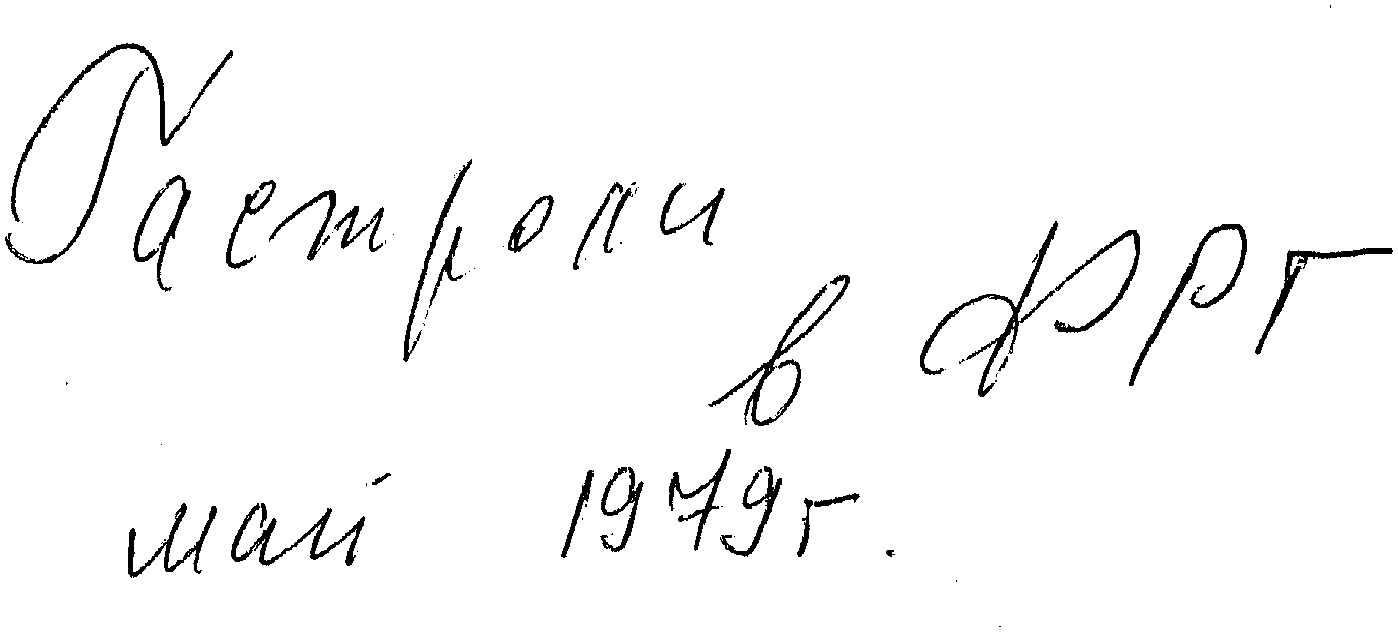 Гастроли
в ФРГ
май 1979г.